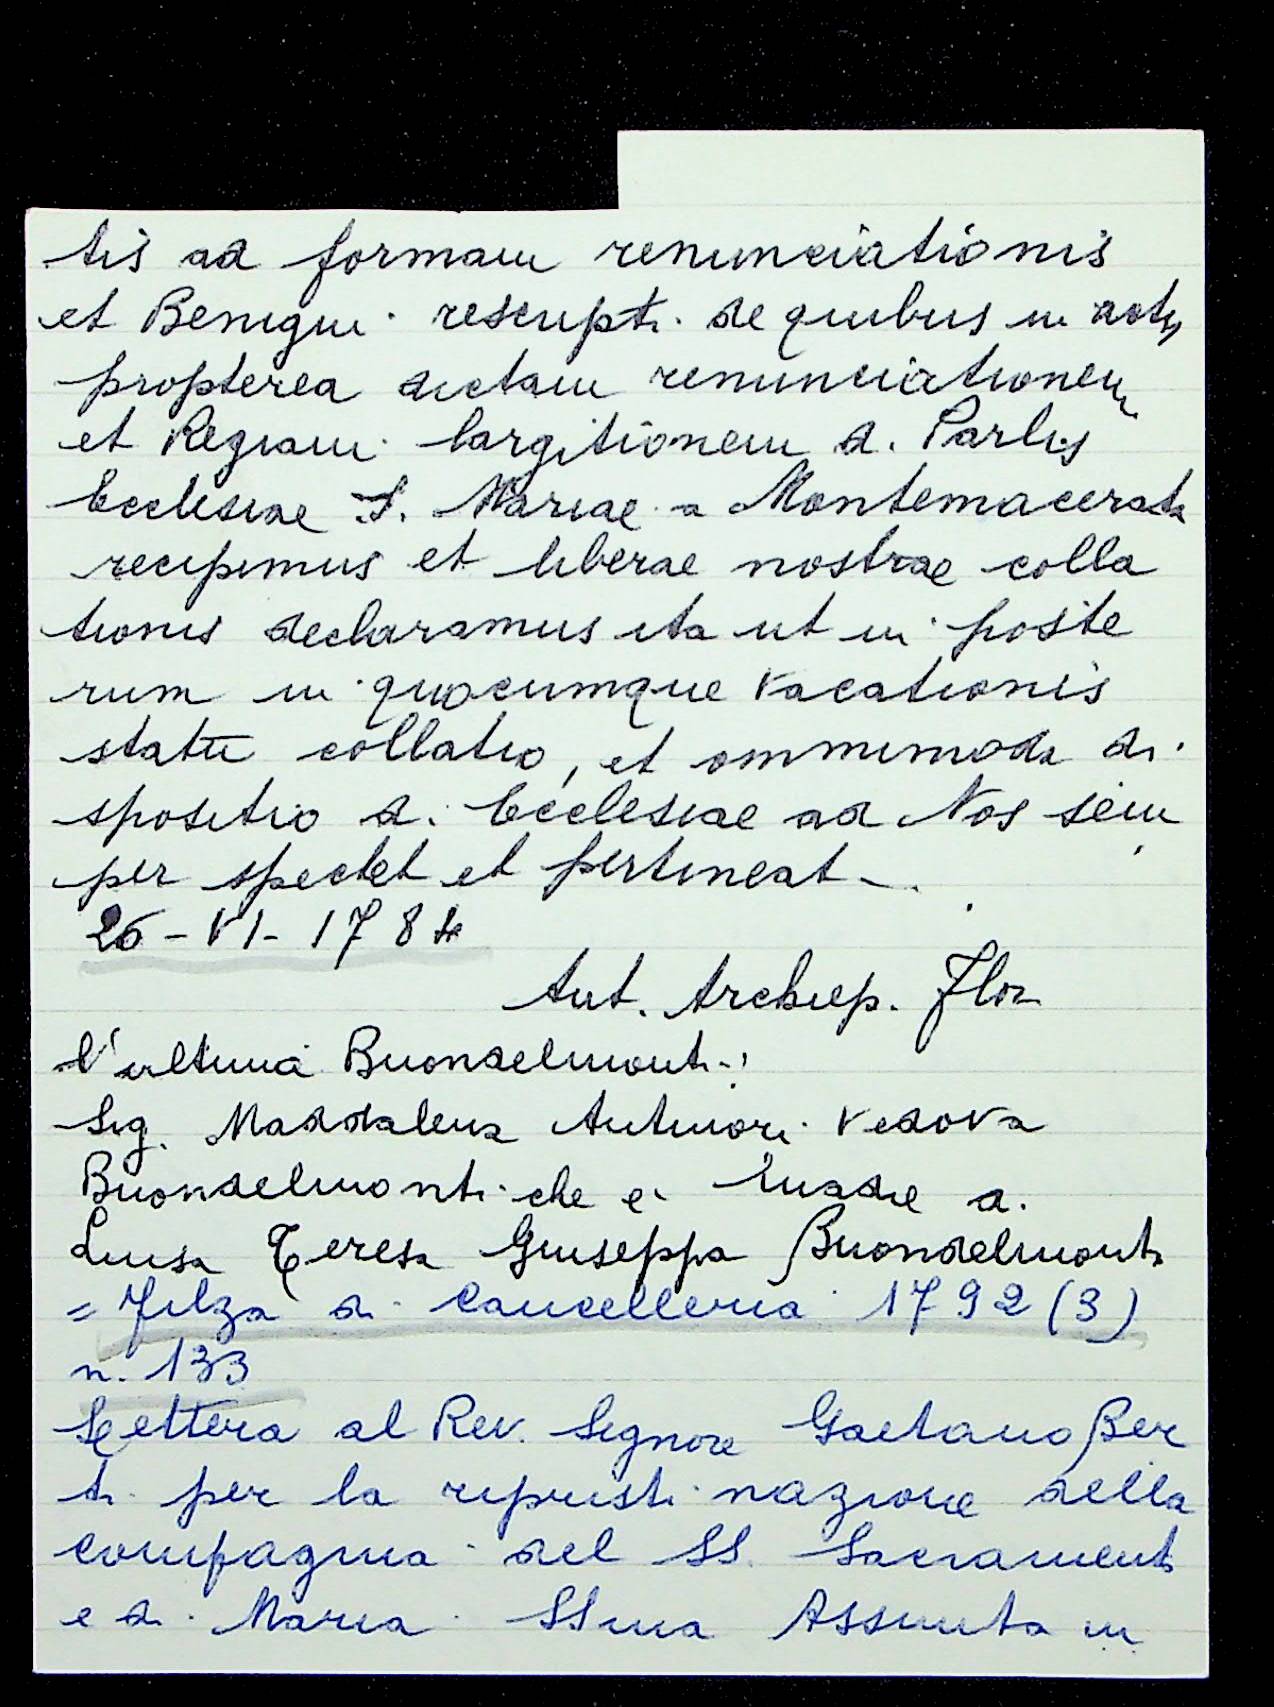 tis ad formam renunciationis
et Benigni rescripti de quibus in actis
propterea dictam renunciationem
et Regiam largitionem d. Parlis
Ecclesiae S. Mariae a Montemacerata
recipimus et liberae nostrae colla
tionis declaramus ita ut in poste
rum in quocumque vacationis
statu collatio, et ommimoda di
spositio d. Ecclesiae ad Nos sem
per spectet et pertineat.
26-VI-1784
Ant. Archiep. Flor
L'ultima Buondelmonti:
Sig. Maddalena Antinori Vedova
Buondelmonti che e madre a.
Luisa Teresa Giuseppa Buondelmonti
= Filza di Cancelleria 1792 (3)
n. 133
Lettera al Rev. Signore Gaetano Ber
ti per la ripristinazione della
compagnia del SS. Sacramento
e di Maria SSma Assunta in